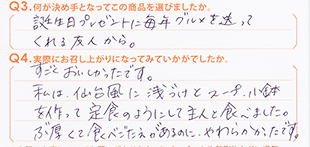 Q3.何が決め手となってこの商品を選びましたか。
誕生日プレゼントに毎年グルメを送って
くれる友人から。
Q4.実際にお召し上がりになってみていかがでしたか。
すごくおいしかったです。
私は、仙台風に浅づけとスープ、小鉢
を作って定食のようにして主人と食べました。
ぶ厚くて食べごたえがあるのに、やわらかかったです。